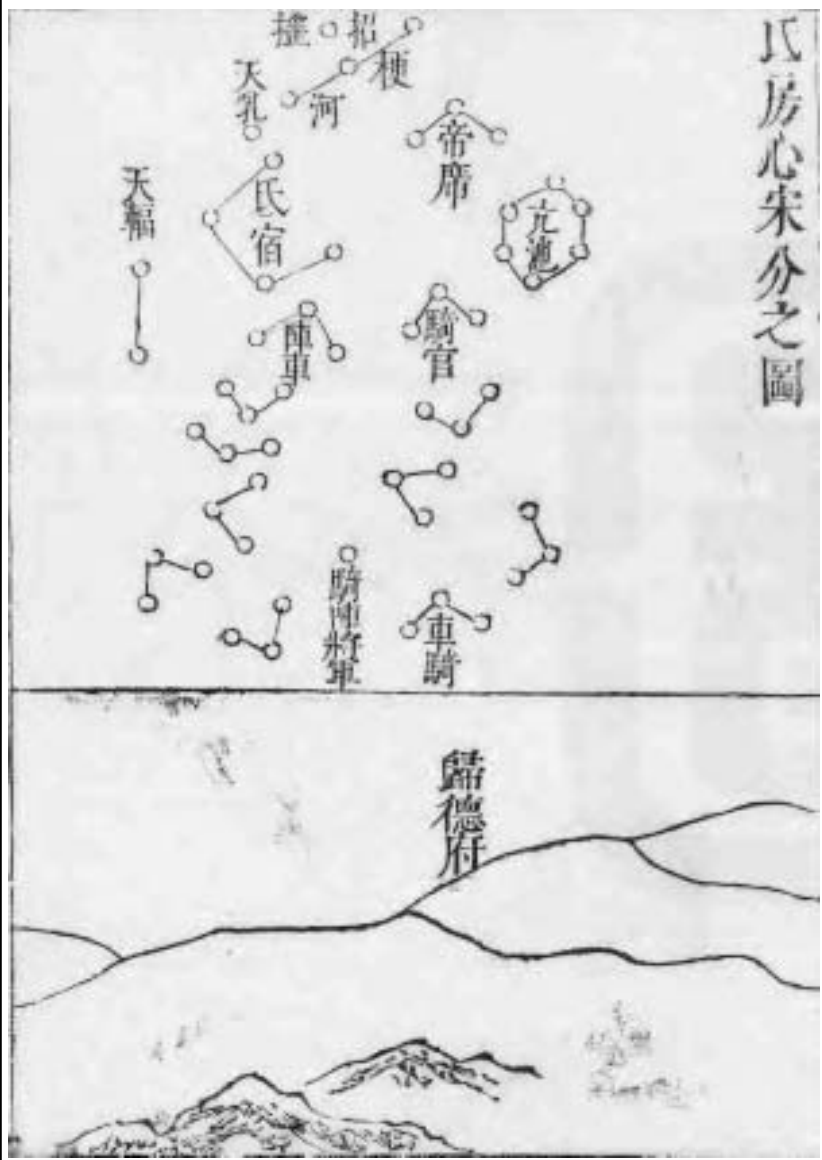 氐房心宋分之圖
招
搖
梗
河
天乳
帝席
亢池
氐宿
天輻
騎官
陣車
車騎
騎陣將軍
歸德府